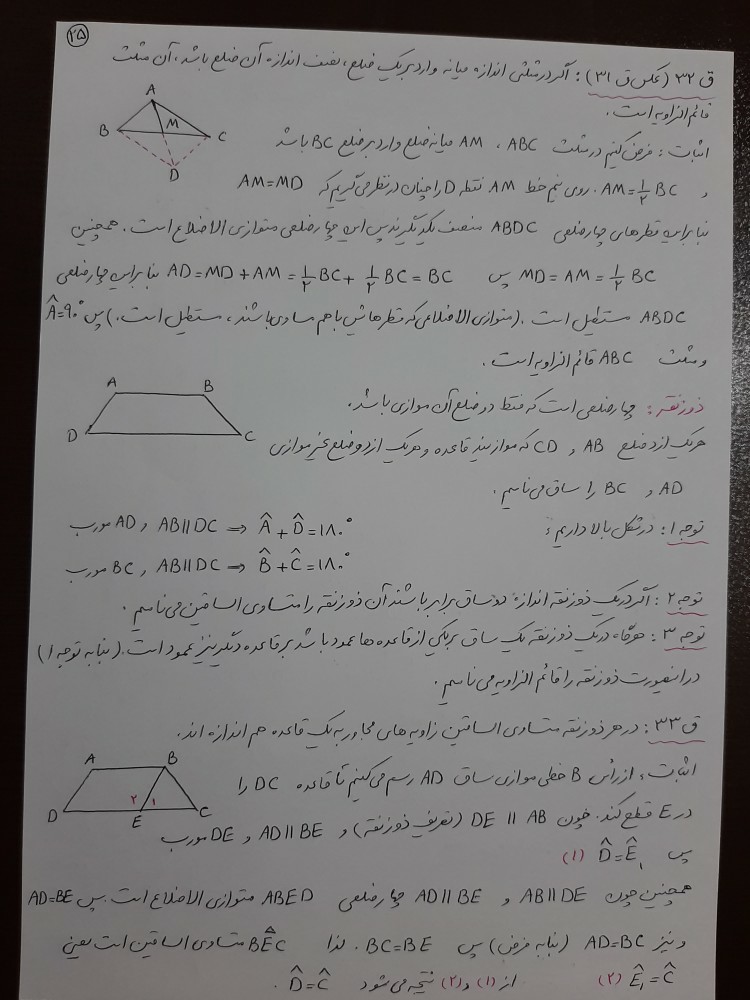 ۲۵
ق ۳۲ (عکس ق ۳۱) : اگر در مثلثی اندازه میانه وارد بر یک ضلع ، نصف اندازه آن ضلع باشد ، آن مثلث
قائم الزاویه است .
A
B
M
C
D
اثبات : فرض کنیم در مثلث ABC ، AM میانه ضلع وارد بر ضلع BC باشد
و AM = ½ BC . روی نیم خط AM نقطه D را چنان در نظر می گیریم که AM = MD
بنابراین قطرهای چهارضلعی ABDC منصف یکدیگرند پس این چهارضلعی متوازی الاضلاع است . همچنین
MD = AM = ½ BC پس AD = MD + AM = ½ BC + ½ BC = BC بنابراین چهارضلعی
ABDC مستطیل است . (متوازی الاضلاعی که قطرهایش با هم مساوی باشند ، مستطیل است .) پس Â = ۹۰°
و مثلث ABC قائم الزاویه است .
A
B
D
C
ذوزنقه : چهارضلعی است که فقط دو ضلع آن موازی باشد .
هر یک از دو ضلع AB و CD که موازیند قاعده و هر یک از دو ضلع غیر موازی
AD و BC را ساق می نامیم .
توجه ۱ : در شکل بالا داریم :
AB || DC و AD مورب ⇒ Â + D̂ = ۱۸۰°
AB || DC و BC مورب ⇒ B̂ + Ĉ = ۱۸۰°
توجه ۲ : اگر در یک ذوزنقه اندازه دو ساق برابر باشند آن ذوزنقه را متساوی الساقین می نامیم .
توجه ۳ : هرگاه در یک ذوزنقه یک ساق بر یکی از قاعده ها عمود باشد بر قاعده دیگر نیز عمود است . (بنا به توجه ۱)
در اینصورت ذوزنقه را قائم الزاویه می نامیم .
ق ۳۳ : در هر ذوزنقه متساوی الساقین زاویه های مجاور به یک قاعده هم اندازه اند .
A
B
۲
۱
D
E
C
اثبات : از رأس B خطی موازی ساق AD رسم می کنیم تا قاعده DC را
در E قطع کند . چون DE || AB (تعریف ذوزنقه) و AD || BE و DE مورب
پس D̂ = Ê₁ (۱)
همچنین چون AB || DE و AD || BE چهارضلعی ABED متوازی الاضلاع است . پس AD = BE
و نیز AD = BC (بنا به فرض) پس BC = BE . لذا BEC متساوی الساقین است یعنی
Ê₁ = Ĉ (۲) از (۱) و (۲) نتیجه می شود D̂ = Ĉ .